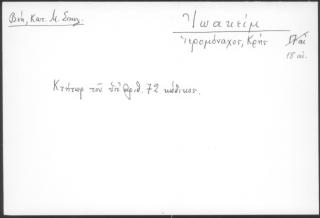 Βέη, Κατ. Μ. Σπηλ.
Ἰωακεὶμ
Ἱερομόναχος, Κρήτ 17 αἰ
18 αἰ.
Κτήτωρ τοῦ ὑπ' ἀριθ. 72 κώδικος.